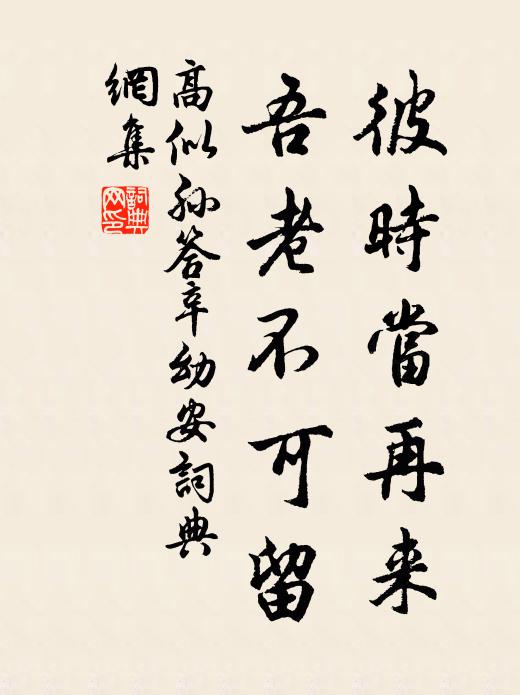 彼時當再来
吾老不可留
高似孫答辛幼安詞典
網集
詞典網印